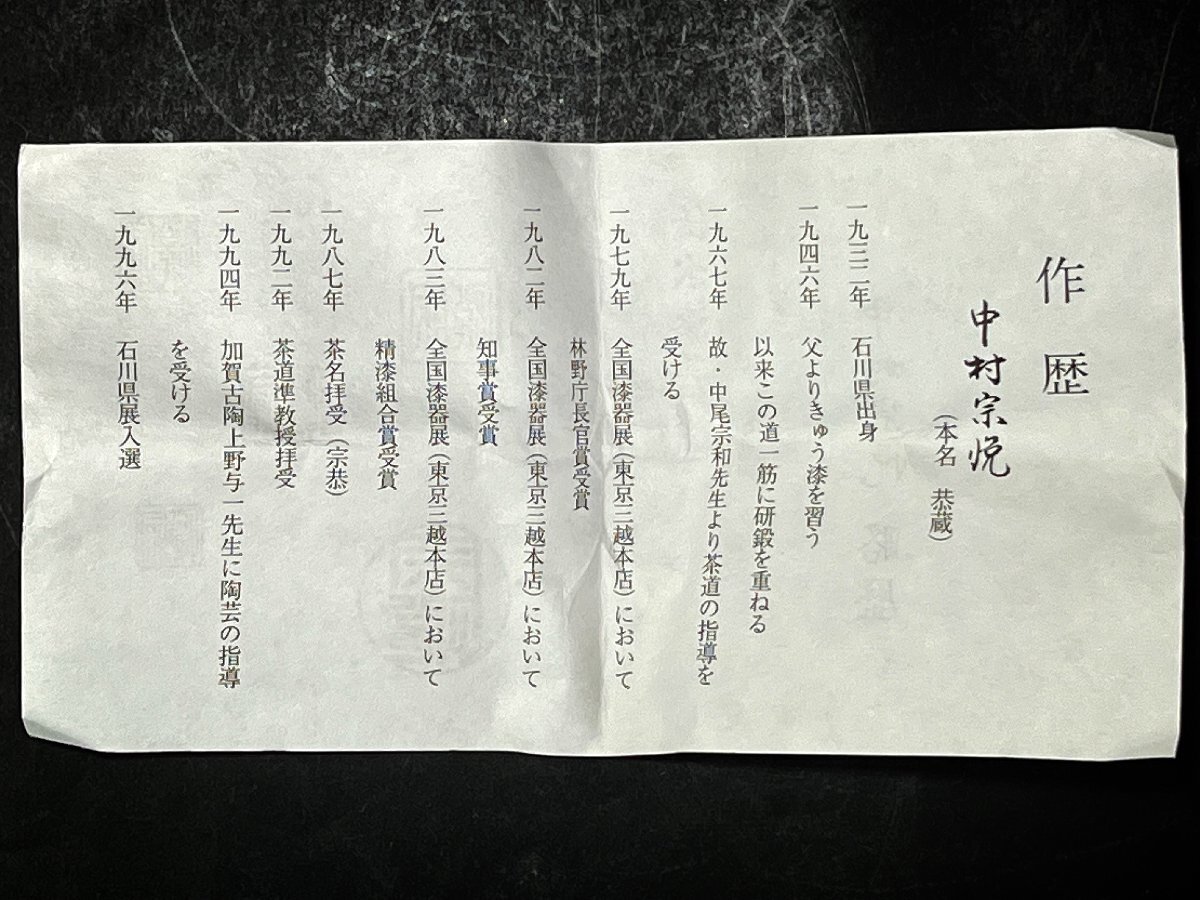 作歴
中村宗悦
（本名　恭蔵）
一九三二年　石川県出身
一九四六年　父よりきゅう漆を習う
以来この道一筋に研鍛を重ねる
一九六七年　故・中尾宗和先生より茶道の指導を
受ける
一九七九年　全国漆器展（東京三越本店）において
林野庁長官賞受賞
一九八二年　全国漆器展（東京三越本店）において
知事賞受賞
一九八三年　全国漆器展（東京三越本店）において
精漆組合賞受賞
一九八七年　茶名拝受（宗恭）
一九九二年　茶道準教授拝受
一九九四年　加賀古陶上野与一先生に陶芸の指導
を受ける
一九九六年　石川県展入選